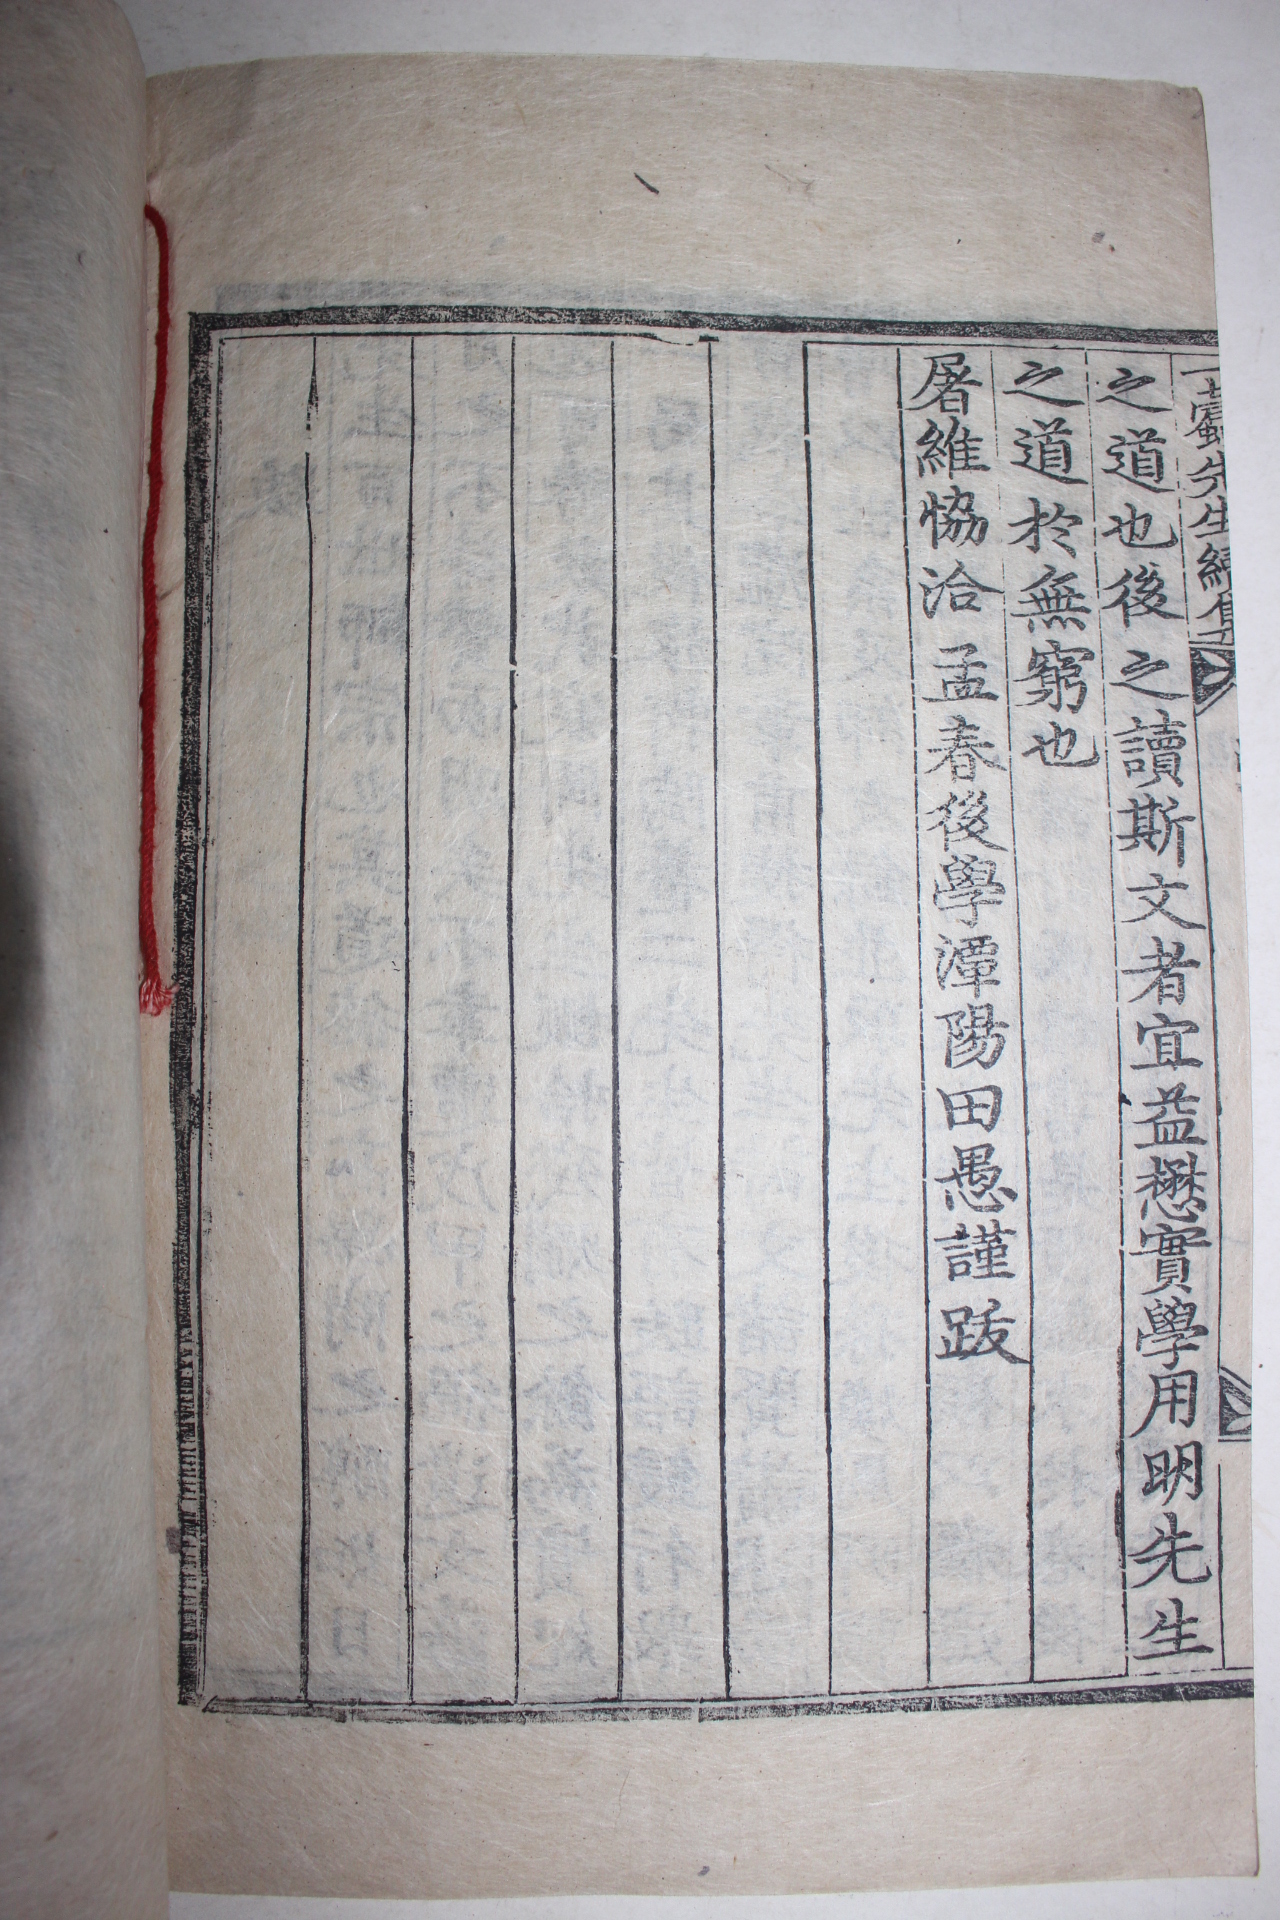 一蠹先生續集
之道也後之讀斯文者宜益懋實學用明先生
之道於無窮也
屠維協洽孟春後學潭陽田愚謹跋